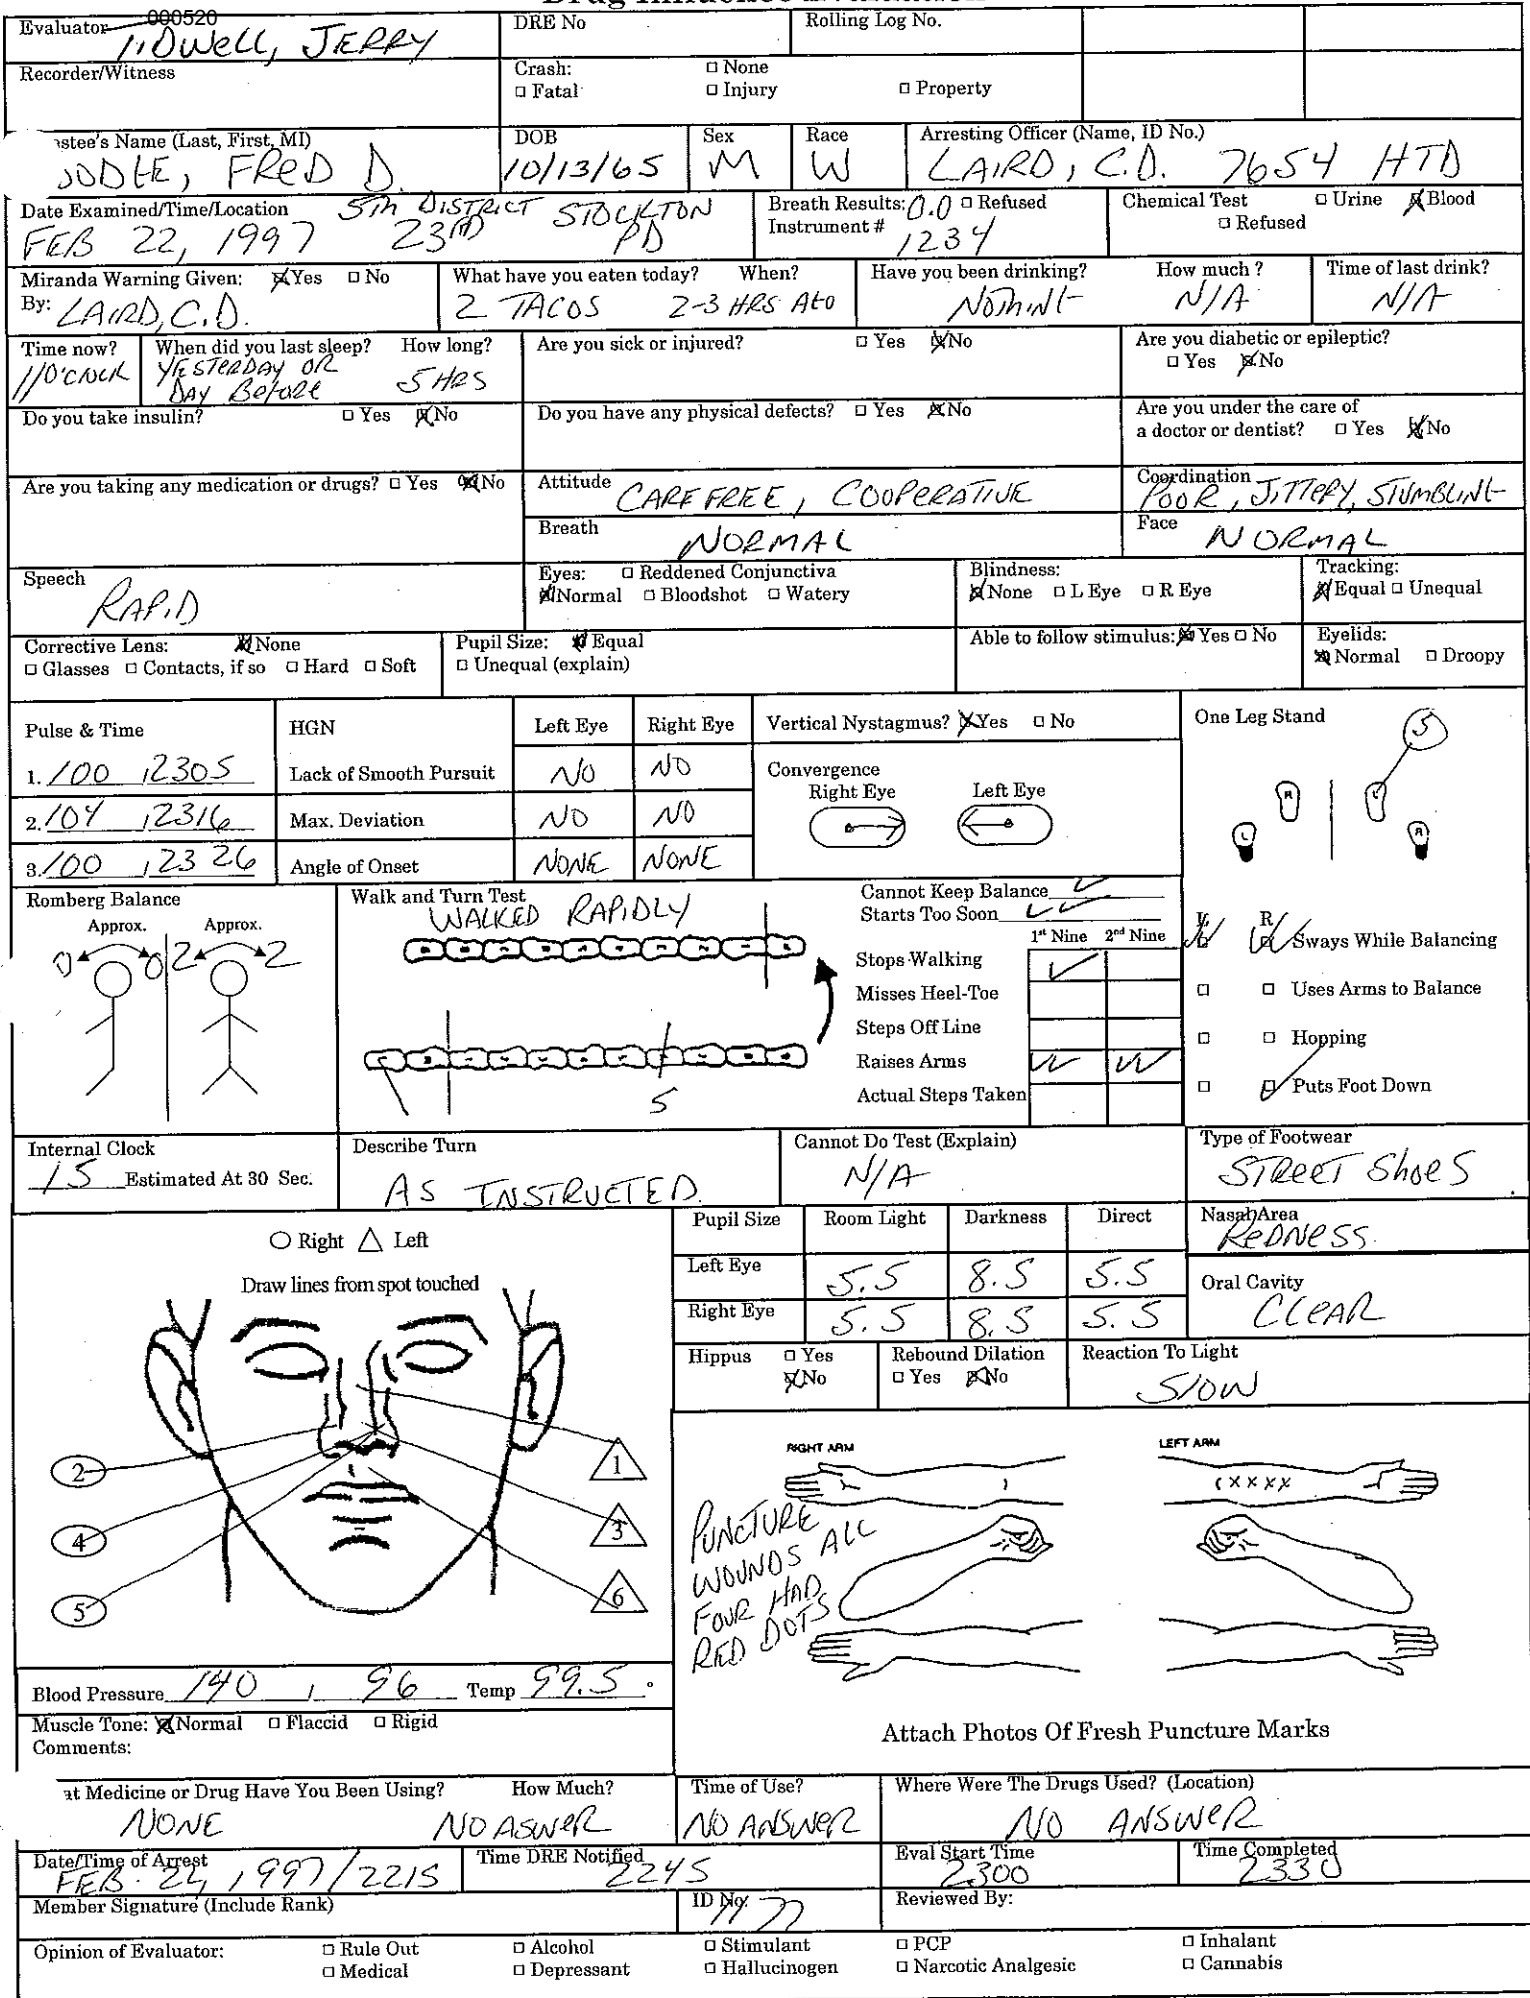 000520
Evaluator JERRY
DRE No
Rolling Log No.
Recorder/Witness
Crash: □ None
□ Fatal □ Injury □ Property
stee's Name (Last, First, MI)
FRED D.
DOB
10/13/65
Sex
M
Race
W
Arresting Officer (Name, ID No.)
LAIRD, C.D. 7654 HTD
Date Examined/Time/Location 5TH DISTRICT STOCKTON
FEB 22, 1997 PD
Breath Results: 0.0 □ Refused
Instrument # 1234
Chemical Test □ Urine ☒ Blood
□ Refused
Miranda Warning Given: ☒ Yes □ No
By: LAIRD, C.D.
What have you eaten today? When?
2 TACOS 2-3 HRS AGO
Have you been drinking?
NOTHING
How much?
N/A
Time of last drink?
N/A
Time now?
When did you last sleep? How long?
YESTERDAY OR
DAY BEFORE 5 HRS
Are you sick or injured? □ Yes ☒ No
Are you diabetic or epileptic?
□ Yes ☒ No
Do you take insulin? □ Yes ☒ No
Do you have any physical defects? □ Yes ☒ No
Are you under the care of
a doctor or dentist? □ Yes ☒ No
Are you taking any medication or drugs? □ Yes ☒ No
Attitude CAREFREE, COOPERATIVE
Coordination
POOR, JITTERY, STUMBLING
Breath NORMAL
Face NORMAL
Speech
RAPID
Eyes: □ Reddened Conjunctiva
☒ Normal □ Bloodshot □ Watery
Blindness:
☒ None □ L Eye □ R Eye
Tracking:
☒ Equal □ Unequal
Corrective Lens: ☒ None
□ Glasses □ Contacts, if so □ Hard □ Soft
Pupil Size: ☒ Equal
□ Unequal (explain)
Able to follow stimulus: ☒ Yes □ No
Eyelids:
☒ Normal □ Droopy
Pulse & Time
1. 100 , 2305
2. 104 , 2316
3. 100 , 2326
HGN Left Eye Right Eye
Lack of Smooth Pursuit NO NO
Max. Deviation NO NO
Angle of Onset NONE NONE
Vertical Nystagmus? ☒ Yes □ No
Convergence
Right Eye Left Eye
One Leg Stand
5
R L
L R
Romberg Balance
Approx. Approx.
0 0 2 2
Walk and Turn Test
WALKED RAPIDLY
5
Cannot Keep Balance ✓
Starts Too Soon ✓✓
1st Nine 2nd Nine
Stops Walking ✓
Misses Heel-Toe
Steps Off Line
Raises Arms ✓✓ ✓✓
Actual Steps Taken
L R
Sways While Balancing
□ □ Uses Arms to Balance
□ □ Hopping
□ ☑ Puts Foot Down
Internal Clock
15 Estimated At 30 Sec.
Describe Turn
AS INSTRUCTED.
Cannot Do Test (Explain)
N/A
Type of Footwear
STREET SHOES
○ Right △ Left
Draw lines from spot touched
1
2
3
4
5
6
Pupil Size Room Light Darkness Direct
Left Eye 5.5 8.5 5.5
Right Eye 5.5 8.5 5.5
Nasal Area
REDNESS.
Oral Cavity
CLEAR
Hippus □ Yes
☒ No
Rebound Dilation
□ Yes ☒ No
Reaction To Light
SLOW
RIGHT ARM
LEFT ARM
XXXX
PUNCTURE
WOUNDS ALL
FOUR HAD
RED DOTS
Attach Photos Of Fresh Puncture Marks
Blood Pressure 140 / 96 Temp 99.5 °
Muscle Tone: ☒ Normal □ Flaccid □ Rigid
Comments:
at Medicine or Drug Have You Been Using? How Much?
NONE NO ASWER
Time of Use?
NO ANSWER
Where Were The Drugs Used? (Location)
NO ANSWER
Date/Time of Arrest
FEB 1997/2215
Time DRE Notified
2245
Eval Start Time
2300
Time Completed
2330
Member Signature (Include Rank)
ID No.
Reviewed By:
Opinion of Evaluator: □ Rule Out □ Alcohol □ Stimulant □ PCP □ Inhalant
□ Medical □ Depressant □ Hallucinogen □ Narcotic Analgesic □ Cannabis